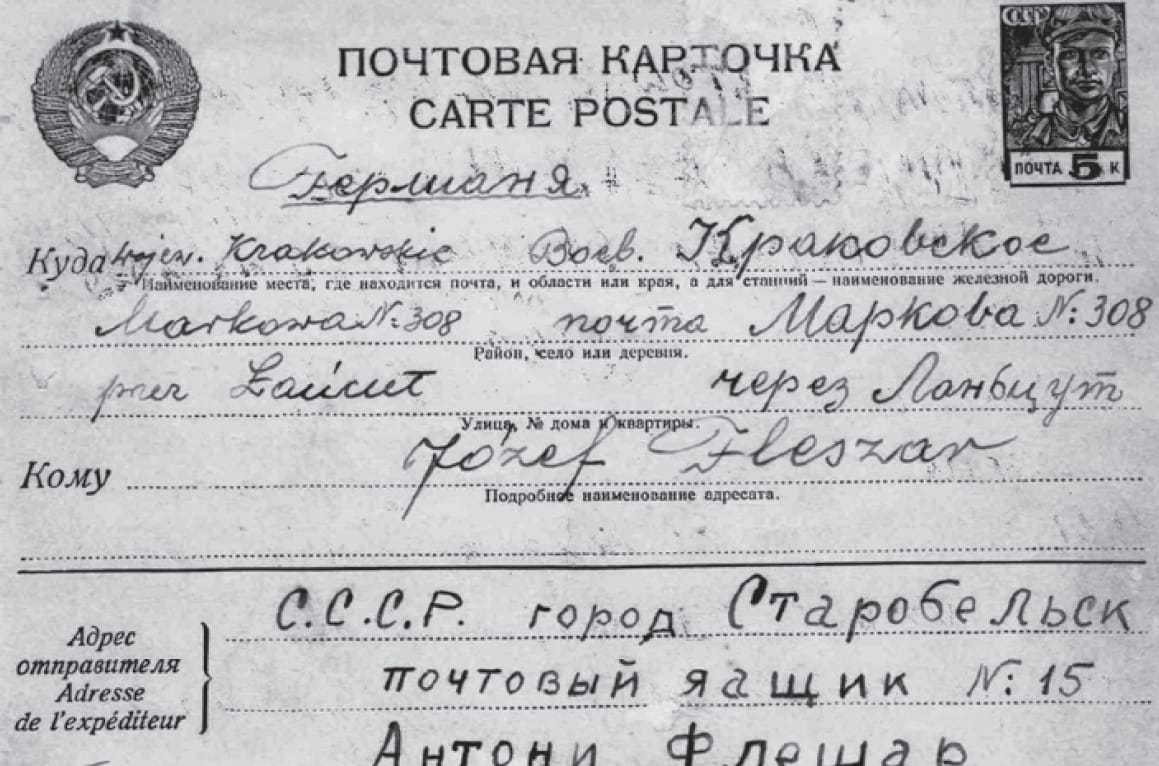 СССР
ПОЧТОВАЯ КАРТОЧКА
CARTE POSTALE
ПОЧТА 5 К
Германя
Куда wojew. Krakowskie Воев. Краковское
Наименование места, где находится почта, и области или края, а для станций — наименование железной дороги.
Markowa N: 308 почта Маркова N: 308
Район, село или деревня.
przez Łańcut через Ланьцут
Улица, № дома и квартиры.
Кому Józef Fleszar
Подробное наименование адресата.
С.С.С.Р. город Старобельск
Адрес
отправителя
Adresse
de l'expéditeur
почтовый ящик N: 15
Антони Флешар